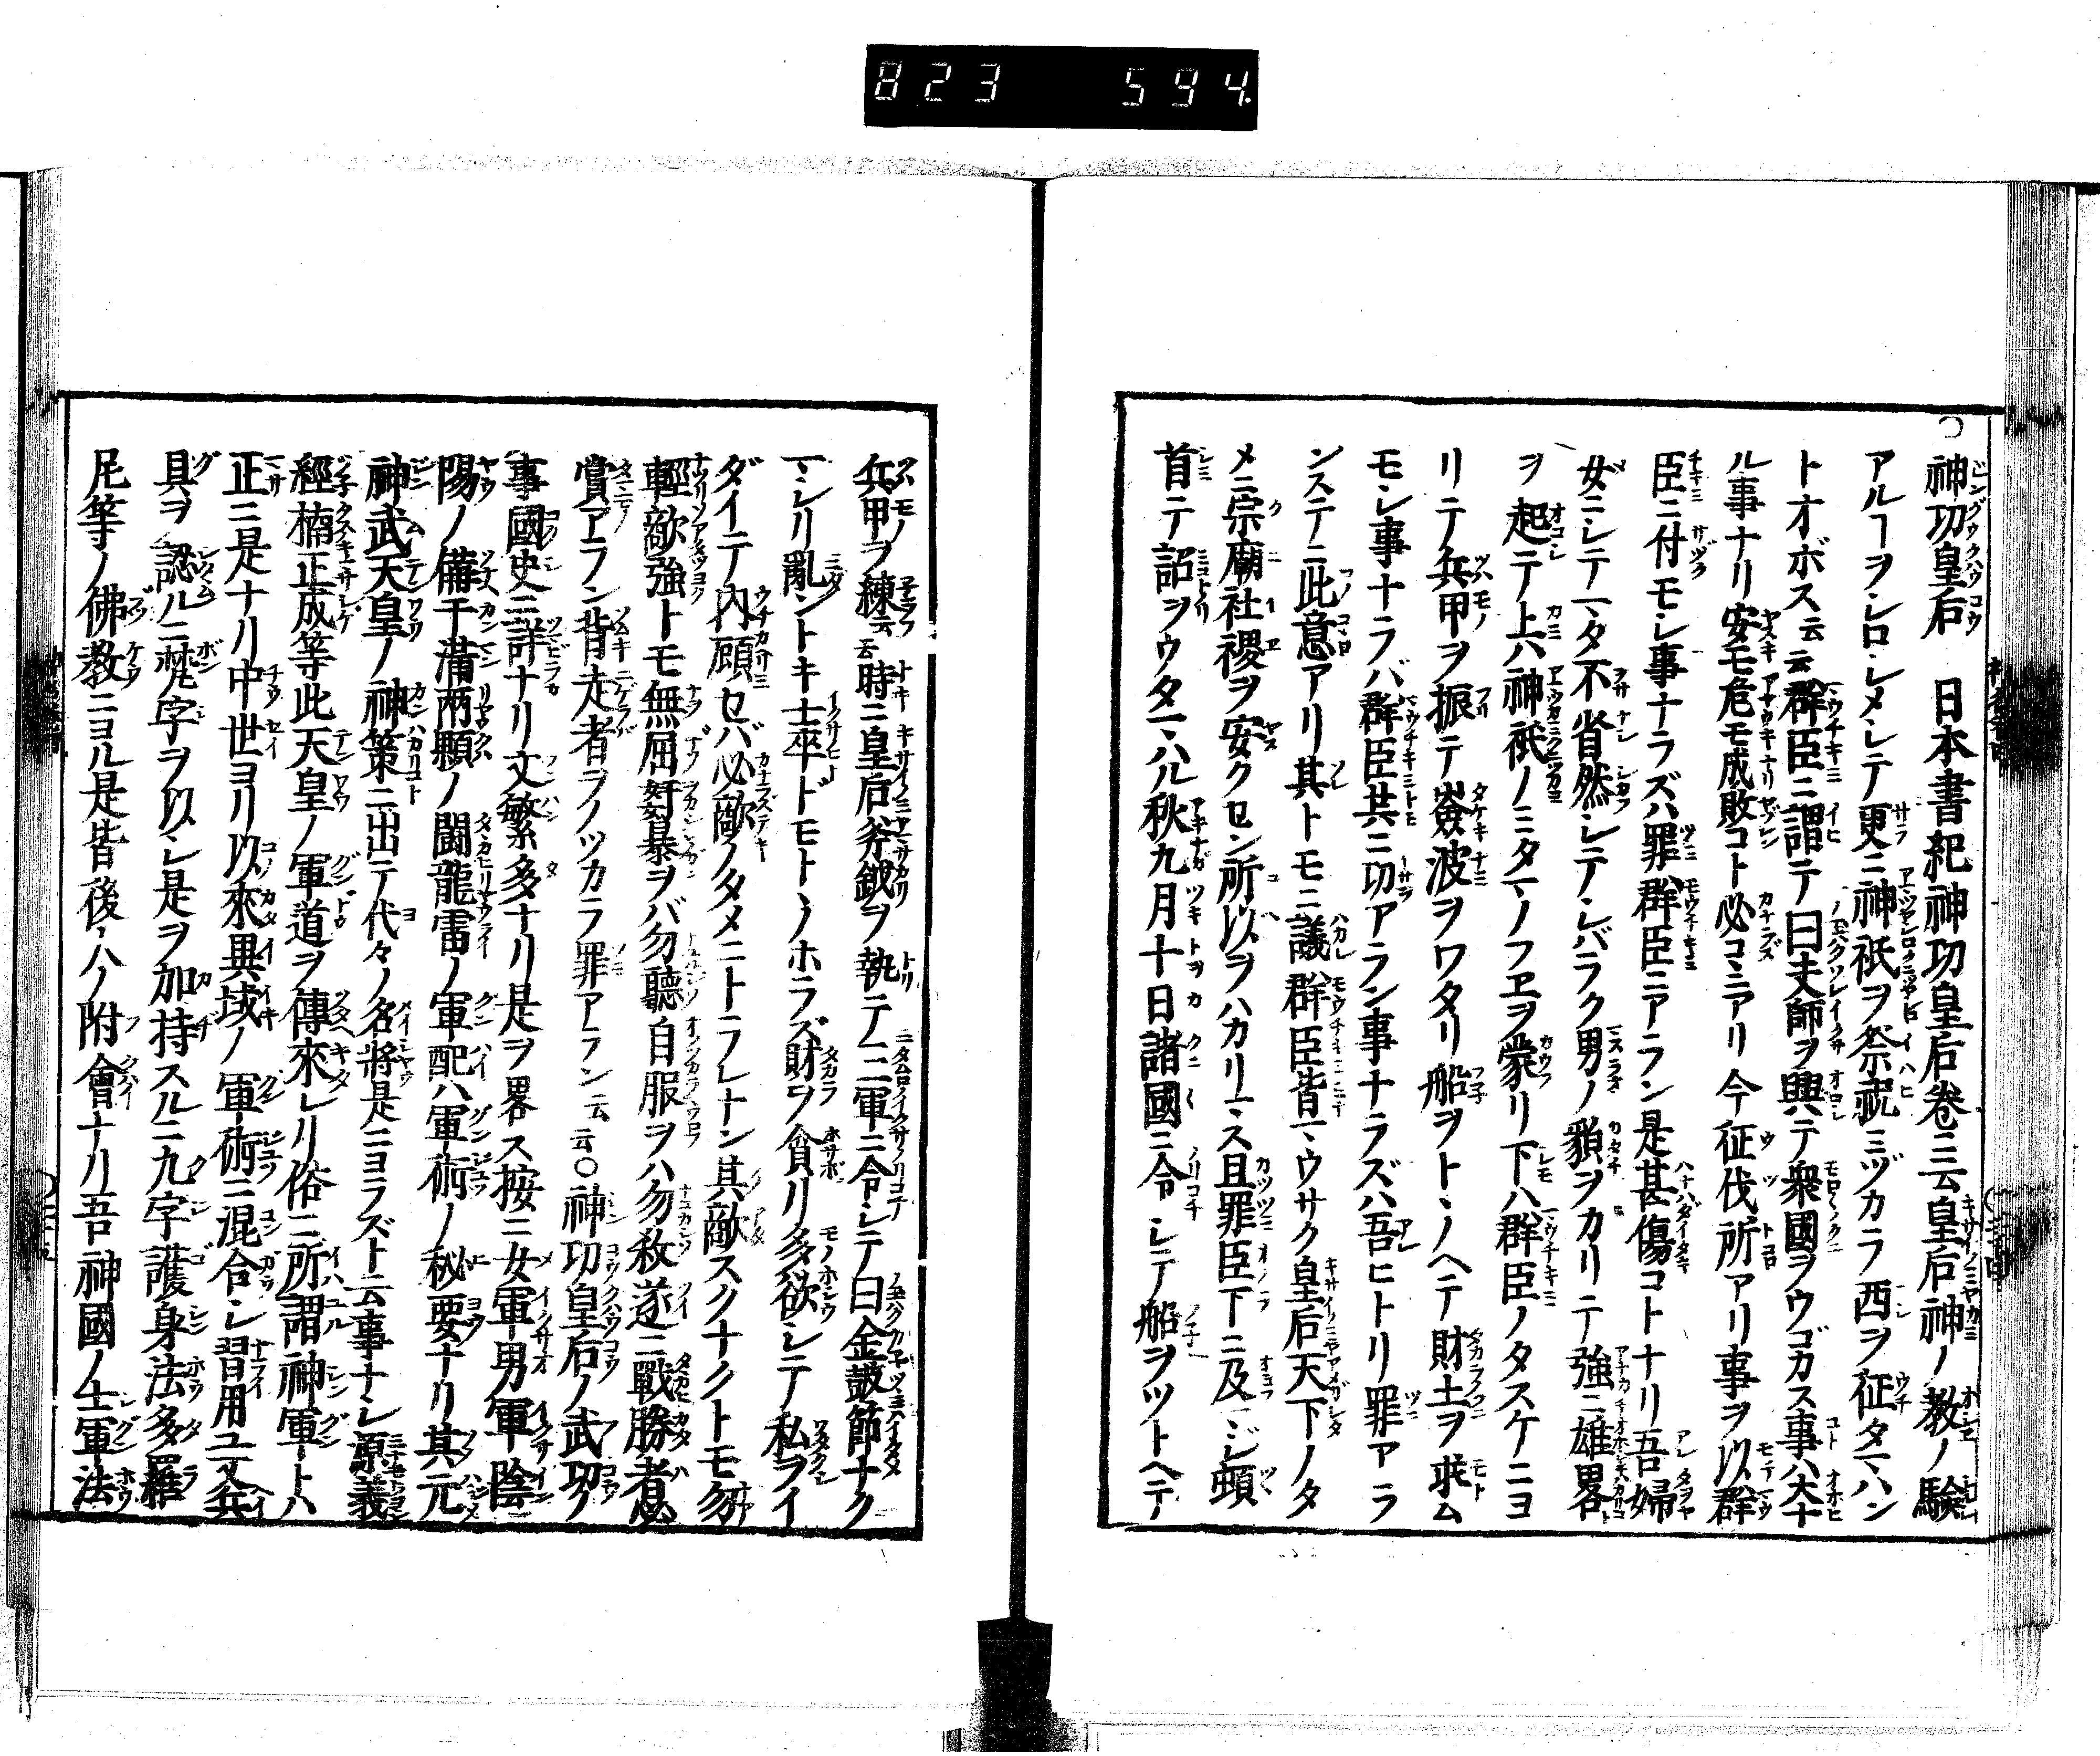 823 594
神功皇后 日本書紀神功皇后卷ニ云皇后神ノ教ノ驗
アルヿヲシロシメシテ更ニ神祇ヲ祭祝ミヅカラ西ヲ征タマハン
トオボス云云群臣ニ謂テ曰夫師ヲ興テ衆國ヲウゴカス事ハ大ナ
ル事ナリ安モ危モ成敗コト必コヽニアリ今征伐所アリ事ヲ以群
臣ニ付モシ事ナラズハ罪群臣ニアラン是甚傷コトナリ吾婦
女ニシテマタ不省然シテシバラク男ノ貌ヲカリテ強ニ雄畧
ヲ起テ上ハ神祇ノミタマノフヱヲ蒙リ下ハ群臣ノタスケニヨ
リテ兵甲ヲ振テ嶮波ヲワタリ船ヲトヽノヘテ財土ヲ求ム
モシ事ナラバ群臣共ニ功アラン事ナラズハ吾ヒトリ罪アラ
ンステニ此意アリ其トモニ議群臣皆マウサク皇后天下ノタ
メニ宗廟社稷ヲ安クセン所以ヲハカリマス且罪臣下ニ及ジ頓
首テ詔ヲウタマハル秋九月十日諸國ニ令シテ船ヲツトヘテ
兵甲ヲ練云云時ニ皇后斧鉞ヲ執テ三軍ニ令シテ曰金鼓節ナク
マシリ亂ントキ士卒ドモトヽノホラズ財ヲ貪リ多欲シテ私ヲイ
ダイテ內顧セバ必敵ノタメニトラレナン其敵スクナクトモ勿
輕敵強トモ無屈奸暴ヲバ勿聽自服ヲハ勿殺遂ニ戰勝者必
賞アラン背走者ヲノツカラ罪アラン云云○神功皇后ノ武功ノ
事國史ニ詳ナリ文繁多ナリ是ヲ畧ス按ニ女軍男軍陰
陽ノ備干滿兩顆ノ鬪龍雷ノ軍配ハ軍術ノ秘要ナリ其元
神武天皇ノ神策ニ出テ代々ノ名將是ニヨラズト云事ナシ源義
經楠正成等此天皇ノ軍道ヲ傳來レリ俗ニ所謂神軍トハ
正ニ是ナリ中世ヨリ以來異域ノ軍術ニ混合シ習用ユ又兵
具ヲ認ルニ梵字ヲ以シ是ヲ加持スルニ九字護身法多羅
尼等ノ佛教ニヨル是皆後人ノ附會ナリ吾神國ノ士軍法